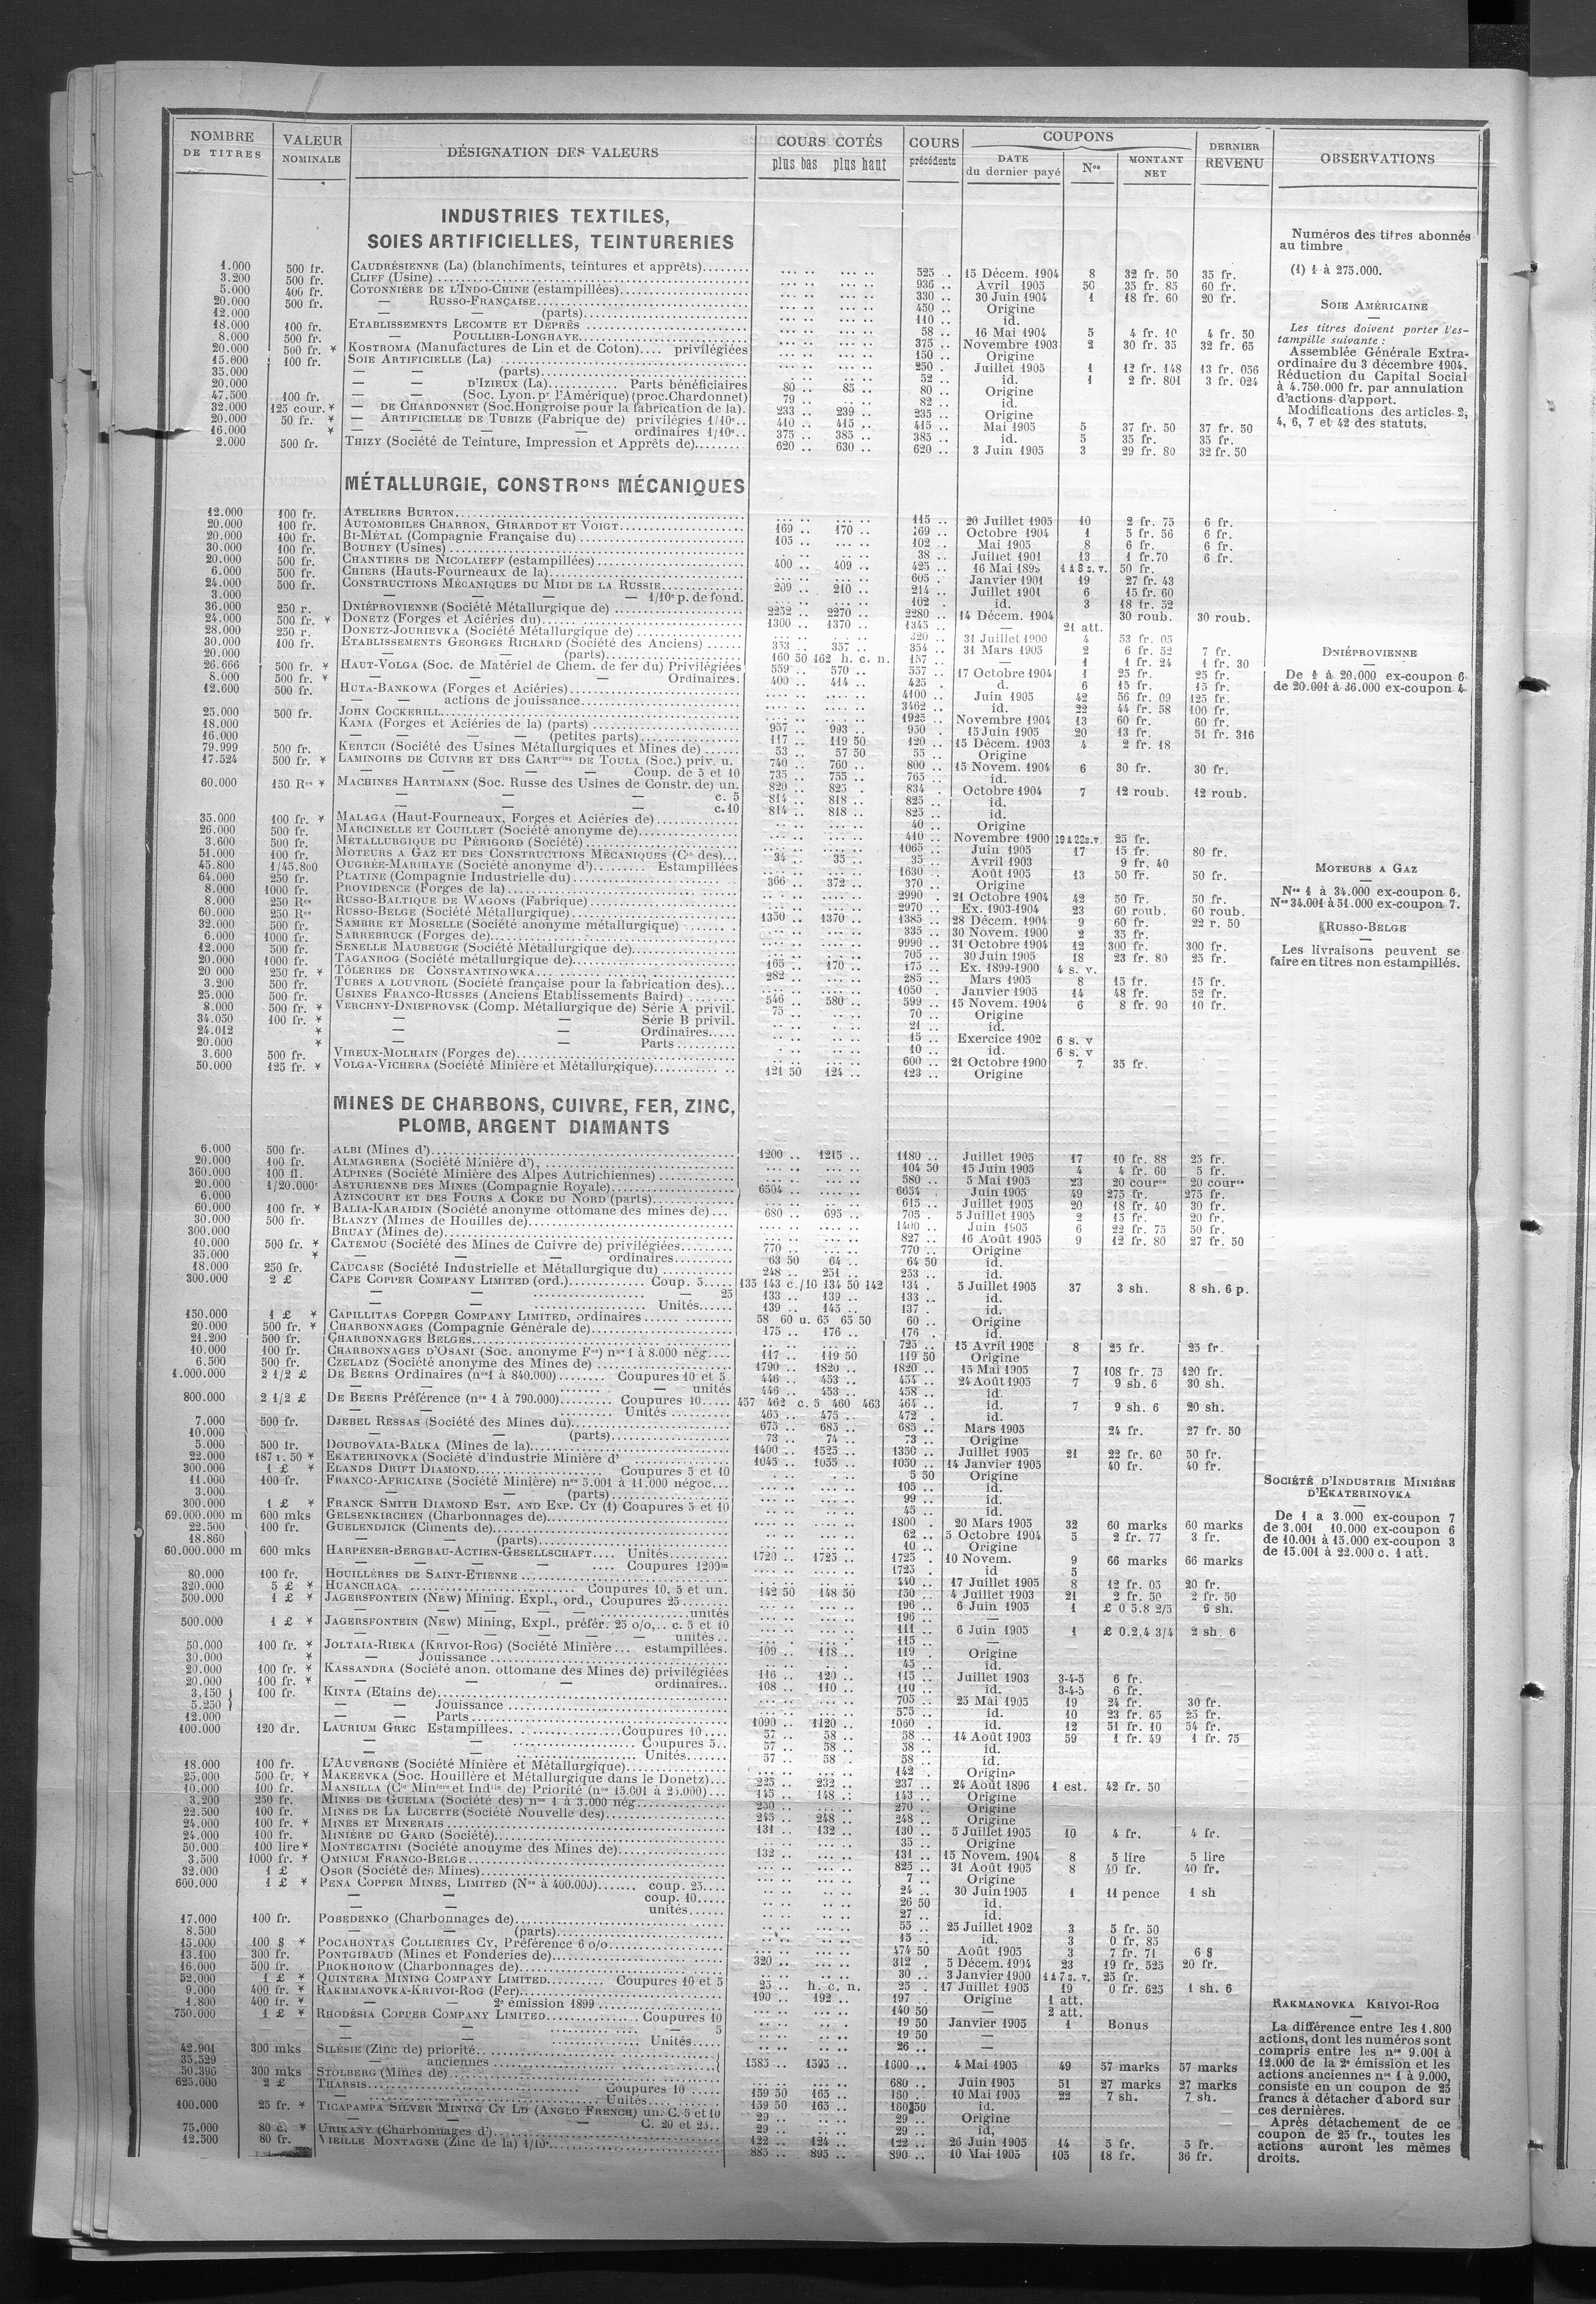 NOMBRE DE TITRES | VALEUR NOMINALE | DÉSIGNATION DES VALEURS | COURS COTÉS plus bas plus haut | COURS précédents | COUPONS DATE du dernier payé | Nos | MONTANT NET | DERNIER REVENU | OBSERVATIONS
INDUSTRIES TEXTILES,
SOIES ARTIFICIELLES, TEINTURERIES
1.000 500 fr. CAUDRÉSIENNE (La) (blanchiments, teintures et apprêts) 525 .. 15 Décem. 1904 8 32 fr. 50 35 fr.
3.200 500 fr. CLIFF (Usine) 936 .. Avril 1905 50 35 fr. 85 60 fr.
5.000 400 fr. COTONNIÈRE DE L'INDO-CHINE (estampillées) 330 .. 30 Juin 1904 1 18 fr. 60 20 fr.
20.000 500 fr. — RUSSO-FRANÇAISE 450 .. Origine
12.000 — — (parts) 110 .. id.
18.000 100 fr. ETABLISSEMENTS LECOMTE ET DEPRÈS 58 .. 16 Mai 1904 5 4 fr. 10 4 fr. 50
8.000 500 fr. — POULLIER-LONGHAYE 375 .. Novembre 1903 2 30 fr. 35 32 fr. 65
20.000 500 fr. * KOSTROMA (Manufactures de Lin et de Coton).... privilégiées 150 .. Origine
15.600 100 fr. SOIE ARTIFICIELLE (La) 250 . Juillet 1905 1 12 fr. 148 13 fr. 056
35.000 — — (parts) 52 .. id. 1 2 fr. 801 3 fr. 024
20.000 — — D'IZIEUX (La) Parts bénéficiaires 80 .. 85 .. 80 .. Origine
47.500 100 fr. — — (Soc. Lyon. pr l'Amérique) (proc. Chardonnet) 79 .. 82 .. id.
32.000 125 cour. * — DE CHARDONNET (Soc. Hongroise pour la fabrication de la) 233 .. 239 .. 235 .. Origine
20.000 50 fr. * — ARTIFICIELLE DE TUBIZE (Fabrique de) privilégies 1/10e 410 .. 415 .. 415 .. Mai 1905 5 37 fr. 50 37 fr. 50
16.000 * — — — ordinaires 1/10e 375 .. 385 .. 385 .. id. 5 35 fr. 35 fr.
2.000 500 fr. THIZY (Société de Teinture, Impression et Apprêts de) 620 .. 630 .. 620 .. 3 Juin 1905 3 29 fr. 80 32 fr. 50
MÉTALLURGIE, CONSTRons MÉCANIQUES
12.000 100 fr. ATELIERS BURTON 115 .. 20 Juillet 1905 10 2 fr. 75 6 fr.
20.000 100 fr. AUTOMOBILES CHARRON, GIRARDOT ET VOIGT 169 .. 170 .. 169 .. Octobre 1904 1 5 fr. 56 6 fr.
20.000 100 fr. BI-MÉTAL (Compagnie Française du) 105 .. 102 .. Mai 1905 8 6 fr. 6 fr.
30.000 100 fr. BOUHEY (Usines) 38 .. Juillet 1901 13 1 fr.70 6 fr.
20.000 500 fr. CHANTIERS DE NICOLAIEFF (estampillées) 400 .. 409 .. 425 .. 16 Mai 1899 1 à 8 s. v. 50 fr.
6.000 500 fr. CHIERS (Hauts-Fourneaux de la) 605 . Janvier 1901 19 27 fr. 43
24.000 500 fr. CONSTRUCTIONS MÉCANIQUES DU MIDI DE LA RUSSIE 209 .. 210 .. 214 .. Juillet 1901 6 15 fr. 60
3.000 — — — — 1/10e p. de fond. 102 . id. 3 18 fr. 52
36.000 250 r. DNIÉPROVIENNE (Société Métallurgique de) 2252 .. 2270 .. 2280 .. 14 Décem. 1904 30 roub. 30 roub.
24.000 500 fr. * DONETZ (Forges et Aciéries du) 1300 .. 1370 .. 1345 .. — 21 att.
28.000 250 r. DONETZ-JOURIEVKA (Société Métallurgique de) 320 .. 31 Juillet 1900 4 53 fr. 05
30.000 100 fr. ETABLISSEMENTS GEORGES RICHARD (Société des Anciens) 353 .. 357 .. 354 .. 31 Mars 1905 2 6 fr. 52 7 fr.
20.000 — — (parts) 160 50 162 h. c. n. 157 .. — 1 1 fr. 24 1 fr. 30
26.666 500 fr. * HAUT-VOLGA (Soc. de Matériel de Chem. de fer du) Privilégiées 559 .. 570 .. 557 .. 17 Octobre 1904 1 25 fr. 25 fr.
8.000 500 fr. * — — — Ordinaires. 400 .. 414 .. 425 . d. 6 15 fr. 15 fr.
12.600 500 fr. HUTA-BANKOWA (Forges et Aciéries) 4100 .. Juin 1905 42 56 fr. 09 125 fr.
— — actions de jouissance 3462 .. id. 22 44 fr. 58 100 fr.
25.000 500 fr. JOHN COCKERILL 1925 .. Novembre 1904 13 60 fr. 60 fr.
18.000 KAMA (Forges et Aciéries de la) (parts) 957 .. 993 .. 950 . 15 Juin 1905 20 13 fr. 51 fr. 316
16.000 — — — (petites parts) 117 .. 119 50 120 .. 15 Décem. 1903 4 2 fr. 18
79.999 500 fr. KERTCH (Société des Usines Métallurgiques et Mines de) 53 .. 57 50 55 .. Origine
17.524 500 fr. * LAMINOIRS DE CUIVRE ET DES CARTries DE TOULA (Soc.) priv. u. 740 .. 760 .. 800 .. 15 Novem. 1904 6 30 fr. 30 fr.
— — — — Coup. de 5 et 10 735 .. 755 .. 765 .. id.
60.000 150 Res * MACHINES HARTMANN (Soc. Russe des Usines de Constr. de) un. 820 .. 825 . 834 . Octobre 1904 7 12 roub. 12 roub.
— — — c. 5 814 .. 818 .. 825 .. id.
— — — c. 10 814 .. 818 .. 825 .. id.
35.000 100 fr. * MALAGA (Haut-Fourneaux, Forges et Aciéries de) 40 .. Origine
26.000 500 fr. MARCINELLE ET COUILLET (Société anonyme de) 410 .. Novembre 1900 19 à 22 s. v. 25 fr.
3.600 500 fr. MÉTALLURGIQUE DU PÉRIGORD (Société) 1065 .. Juin 1905 17 15 fr. 80 fr.
51.000 100 fr. MOTEURS A GAZ ET DES CONSTRUCTIONS MÉCANIQUES (Cie des) 34 .. 35 .. 35 .. Avril 1903 9 fr. 40
45.800 1/45.800 OUGRÉE-MARIHAYE (Société anonyme d') Estampillées 1630 .. Août 1905 13 50 fr. 50 fr.
64.000 250 fr. PLATINE (Compagnie Industrielle du) 366 .. 372 .. 370 .. Origine
8.000 1000 fr. PROVIDENCE (Forges de la) 2990 . 21 Octobre 1904 42 50 fr. 50 fr.
8.000 250 Res RUSSO-BALTIQUE DE WAGONS (Fabrique) 2970 .. Ex. 1903-1904 23 60 roub. 60 roub.
60.000 250 Res RUSSO-BELGE (Société Métallurgique) 1350 .. 1370 .. 1385 .. 28 Décem. 1904 9 60 fr. 22 r. 50
32.000 500 fr. SAMBRE ET MOSELLE (Société anonyme métallurgique) 335 .. 30 Novem. 1900 2 35 fr.
6.000 1000 fr. SARREBRUCK (Forges de) 9990 .. 31 Octobre 1904 12 300 fr. 300 fr.
12.000 500 fr. SENELLE MAUBEUGE (Société Métallurgique de) 705 .. 30 Juin 1905 18 23 fr. 80 25 fr.
20.000 1000 fr. TAGANROG (Société métallurgique de) 165 .. 170 .. 175 .. Ex. 1899-1900 4 s. v.
20 000 250 fr. * TÔLERIES DE CONSTANTINOWKA 282 .. 285 .. Mars 1905 8 15 fr. 15 fr.
3.200 500 fr. TUBES A LOUVROIL (Société française pour la fabrication des) 1050 . Janvier 1905 14 48 fr. 52 fr.
25.000 500 fr. USINES FRANCO-RUSSES (Anciens Etablissements Baird) 546 .. 580 .. 599 .. 15 Novem. 1904 6 8 fr. 90 10 fr.
8.000 500 fr. * VERCHNY-DNIEPROVSK (Comp. Métallurgique de) Série A privil. 75 .. 70 .. Origine
34.050 100 fr. * — — Série B privil. 21 .. id.
24.012 * — — Ordinaires 15 .. Exercice 1902 6 s. v
20.000 * — — Parts 10 .. id. 6 s. v
3.600 500 fr. VIREUX-MOLHAIN (Forges de) 600 .. 21 Octobre 1900 7 35 fr.
50.000 125 fr. * VOLGA-VICHERA (Société Minière et Métallurgique) 121 50 124 .. 123 .. Origine
MINES DE CHARBONS, CUIVRE, FER, ZINC,
PLOMB, ARGENT DIAMANTS
6.000 500 fr. ALBI (Mines d') 1200 .. 1215 .. 1180 .. Juillet 1905 17 10 fr. 88 25 fr.
20.000 100 fr. ALMAGRERA (Société Minière d') 104 50 15 Juin 1905 4 4 fr. 60 5 fr.
360.000 100 fl. ALPINES (Société Minière des Alpes Autrichiennes) 580 .. 5 Mai 1905 23 20 courons 20 courons
20.000 1/20.000e ASTURIENNE DES MINES (Compagnie Royale) 6504 .. 6654 . Juin 1905 49 275 fr. 275 fr.
6.000 AZINCOURT ET DES FOURS A COKE DU NORD (parts) 615 .. Juillet 1905 20 18 fr. 40 30 fr.
60.000 100 fr. * BALIA-KARAIDIN (Société anonyme ottomane des mines de) 680 .. 695 .. 705 . 5 Juillet 1905 2 15 fr. 20 fr.
30.000 500 fr. BLANZY (Mines de Houilles de) 1400 .. Juin 1905 6 22 fr. 75 50 fr.
300.000 BRUAY (Mines de) 827 .. 16 Août 1905 9 12 fr. 80 27 fr. 50
10.000 500 fr. * CATEMOU (Société des Mines de Cuivre de) privilégiées 770 .. 770 .. Origine
35.000 * — — ordinaires 63 50 64 .. 64 50 id.
18.000 250 fr. CAUCASE (Société Industrielle et Métallurgique du) 248 .. 251 .. 253 .. id.
300.000 2 £ CAPE COPPER COMPANY LIMITED (ord.) Coup. 5 135 143 c./10 134 50 142 134 . 5 Juillet 1905 37 3 sh. 8 sh. 6 p.
— — — 25 133 .. 139 .. 133 .. id.
— — Unités 139 .. 145 .. 137 . id.
150.000 1 £ * CAPILLITAS COPPER COMPANY LIMITED, ordinaires 58 60 u. 65 65 50 60 .. Origine
20.000 500 fr. * CHARBONNAGES (Compagnie Générale de) 175 .. 176 .. 176 . id.
21.200 500 fr. CHARBONNAGES BELGES 725 .. 15 Avril 1905 8 25 fr. 25 fr.
10.000 100 fr. CHARBONNAGES D'OSANI (Soc. anonyme Fse) nos 1 à 8.000 nég. 117 .. 119 50 119 50 Origine
6.500 500 fr. CZELADZ (Société anonyme des Mines de) 1790 .. 1820 .. 1820 .. 15 Mai 1905 7 108 fr. 75 120 fr.
1.000.000 2 1/2 £ DE BEERS Ordinaires (nos 1 à 840.000) Coupures 10 et 5 446 .. 453 .. 454 .. 24 Août 1905 7 9 sh. 6 30 sh.
— — unités 446 .. 453 .. 458 .. id.
800.000 2 1/2 £ DE BEERS Préférence (nos 1 à 790.000) Coupures 10 457 462 c. 5 460 463 464 .. id. 7 9 sh. 6 20 sh.
— — Unités 465 .. 475 .. 472 . id.
7.000 500 fr. DJEBEL RESSAS (Société des Mines du) 675 .. 685 .. 685 .. Mars 1905 24 fr. 27 fr. 50
10.000 — — (parts) 73 .. 74 .. 73 .. Origine
5.000 500 fr. DOUBOVAIA-BALKA (Mines de la) 1400 .. 1525 .. 1350 .. Juillet 1905 21 22 fr. 60 50 fr.
22.000 187 r. 50 * EKATERINOVKA (Société d'industrie Minière d' 1045 .. 1055 .. 1050 .. 14 Janvier 1905 40 fr. 40 fr.
300.000 1 £ * ELANDS DRIFT DIAMOND Coupures 5 et 10 5 50 Origine
11.000 100 fr. FRANCO-AFRICAINE (Société Minière) nos 5.001 à 11.000 négoc. 105 .. id.
3.000 — — (parts) 99 .. id.
300.000 1 £ * FRANCK SMITH DIAMOND EST. AND EXP. CY (1) Coupures 5 et 10 45 .. id.
69.000.000 m 600 mks GELSENKIRCHEN (Charbonnages de) 1800 . 20 Mars 1905 32 60 marks 60 marks
22.500 100 fr. GUELENDJICK (Ciments de) 62 .. 5 Octobre 1904 5 2 fr. 77 3 fr.
18.860 — — (parts) 10 .. Origine
60.000.000 m 600 mks HARPENER-BERGBAU-ACTIEN-GESELLSCHAFT Unités 1720 .. 1725 .. 1725 . 10 Novem. 9 66 marks 66 marks
Coupures 1200m 1725 . id 5
80.000 100 fr. HOUILLÈRES DE SAINT-ETIENNE 440 .. 17 Juillet 1905 8 12 fr. 05 20 fr.
320.000 5 £ * HUANCHACA Coupures 10, 5 et un. 142 50 148 50 150 .. 4 Juillet 1903 21 2 fr. 50 2 fr. 50
500.000 1 £ * JAGERSFONTEIN (NEW) Mining. Expl., ord., Coupures 25 196 .. 6 Juin 1905 1 £ 0 5.8 2/5 6 sh.
— — — unités 196 .. —
500.000 1 £ * JAGERSFONTEIN (NEW) Mining, Expl., préfér. 25 o/o,.. c. 5 et 10 111 .. 6 Juin 1905 1 £ 0.2.4 3/4 2 sh. 6
— — — unités 115 .. —
50.000 100 fr. * JOLTAIA-RIEKA (KRIVOI-ROG) (Société Minière estampillées. 109 .. 118 .. 119 . Origine
30.000 * — — Jouissance 45 .. id.
20.000 100 fr. * KASSANDRA (Société anon. ottomane des Mines de) privilégiées 116 .. 120 .. 115 .. Juillet 1903 3-4-5 6 fr.
20.000 100 fr. * — — — ordinaires 108 .. 110 .. 110 .. id. 3-4-5 6 fr.
3.150 } 100 fr. KINTA (Etains de) 705 .. 25 Mai 1905 19 24 fr. 30 fr.
5.250 } — — Jouissance 575 .. id. 10 23 fr. 65 25 fr.
12.000 — — Parts 1090 .. 1120 .. 1060 . id. 12 51 fr. 10 54 fr.
100.000 120 dr. LAURIUM GREC Estampillees Coupures 10 57 .. 58 .. 58 .. 14 Août 1903 59 1 fr. 49 1 fr. 75
— — Coupures 5 57 .. 58 .. 58 .. id.
— — Unités 57 .. 58 .. 58 .. id.
18.000 100 fr. L'AUVERGNE (Société Minière et Métallurgique) 142 .. Origine
25.000 500 fr. * MAKEEVKA (Soc. Houillère et Métallurgique dans le Donetz) 225 .. 232 .. 237 .. 24 Août 1896 1 est. 42 fr. 50
10.000 100 fr. MANSILLA (Cie Minière et Indlle de) Priorité (nos 15.001 à 25.000) 145 .. 148 .. 143 .. Origine
3.200 250 fr. MINES DE GUELMA (Société des) nos 1 à 3.000 nég. 250 .. 270 .. Origine
22.500 100 fr. MINES DE LA LUCETTE (Société Nouvelle des) 245 .. 248 .. 248 .. Origine
24.000 100 fr. * MINES ET MINERAIS 131 .. 132 .. 130 .. 5 Juillet 1905 10 4 fr. 4 fr.
24.000 100 fr. MINIÈRE DU GARD (Société) 35 .. Origine
50.000 100 lire * MONTECATINI (Société anonyme des Mines de) 132 .. 131 .. 15 Novem. 1904 8 5 lire 5 lire
3.500 1000 fr. * OMNIUM FRANCO-BELGE 825 .. 31 Août 1905 8 40 fr. 40 fr.
32.000 1 £ OSOR (Société des Mines) 7 .. Origine
600.000 1 £ * PENA COPPER MINES, LIMITED (Nos à 400.000) coup. 25 24 .. 30 Juin 1905 1 11 pence 1 sh
— — coup. 10 26 50 id.
— — unités 27 .. id.
17.000 100 fr. POBEDENKO (Charbonnages de) 55 .. 25 Juillet 1902 3 5 fr. 50
8.500 — — (parts) 15 .. id. 3 0 fr. 85
15.000 100 $ * POCAHONTAS COLLIERIES CY, Préférence 6 o/o 474 50 Août 1905 3 7 fr. 71 6 $
13.100 300 fr. PONTGIBAUD (Mines et Fonderies de) 320 .. 312 . 5 Décem. 1904 23 19 fr. 525 20 fr.
16.000 500 fr. PROKHOROW (Charbonnages de) 30 .. 3 Janvier 1900 1 à 7 s. v. 25 fr.
52.000 1 £ * QUINTERA MINING COMPANY LIMITED Coupures 10 et 5 25 .. h. c. n. 25 . 17 Juillet 1905 19 0 fr. 625 1 sh. 6
9.000 400 fr. * RAKHMANOVKA-KRIVOI-ROG (Fer) 190 .. 192 .. 197 .. Origine 1 att.
1.800 400 fr. * — — 2e émission 1899 140 50 — 2 att.
750.000 1 £ * RHODÉSIA COPPER COMPANY LIMITED Coupures 10 19 50 Janvier 1905 1 Bonus
— — 5 19 50 —
— — Unités 26 .. —
42.901 300 mks SILÉSIE (Zinc de) priorité 1585 .. 1595 .. 1600 .. 4 Mai 1905 49 57 marks 57 marks
35.529 — anciennes
50.396 300 mks STOLBERG (Mines de) 680 .. Juin 1905 51 27 marks 27 marks
625.000 2 £ THARSIS Coupures 10 159 50 165 .. 160 . 10 Mai 1905 22 7 sh. 7 sh.
— Unités 159 50 165 .. 160 50 id.
100.000 25 fr. * TICAPAMPA SILVER MINING CY LD (ANGLO FRENCH) un. C. 5 et 10 29 .. 29 .. Origine
— — C. 20 et 25 29 .. 29 .. id.
75.000 80 c. * URIKANY (Charbonnages d') 122 .. 124 .. 122 .. 26 Juin 1905 14 5 fr. 5 fr.
12.500 80 fr. VIEILLE MONTAGNE (Zinc de la) 1/10e 885 .. 895 .. 890 .. 10 Mai 1905 105 18 fr. 36 fr.
Numéros des titres abonnés
au timbre
(1) 1 à 275.000.
SOIE AMÉRICAINE
Les titres doivent porter l'es-
tampille suivante :
Assemblée Générale Extra-
ordinaire du 3 décembre 1904.
Réduction du Capital Social
à 4.750.000 fr. par annulation
d'actions d'apport.
Modifications des articles 2,
4, 6, 7 et 42 des statuts.
DNIÉPROVIENNE
De 1 à 20.000 ex-coupon 6
de 20.001 à 36.000 ex-coupon 4
MOTEURS A GAZ
Nos 1 à 34.000 ex-coupon 6.
Nos 34.001 à 51.000 ex-coupon 7.
RUSSO-BELGE
Les livraisons peuvent se
faire en titres non estampillés.
SOCIÉTÉ D'INDUSTRIE MINIÈRE
D'EKATERINOVKA
De 1 a 3.000 ex-coupon 7
de 3.001 10.000 ex-coupon 6
de 10.001 à 15.000 ex-coupon 3
de 15.001 à 22.000 c. 1 att.
RAKMANOVKA KRIVOI-ROG
La différence entre les 1.800
actions, dont les numéros sont
compris entre les nos 9.001 à
12.000 de la 2e émission et les
actions anciennes nos 1 à 9.000,
consiste en un coupon de 25
francs à détacher d'abord sur
ces dernières.
Après détachement de ce
coupon de 25 fr., toutes les
actions auront les mêmes
droits.